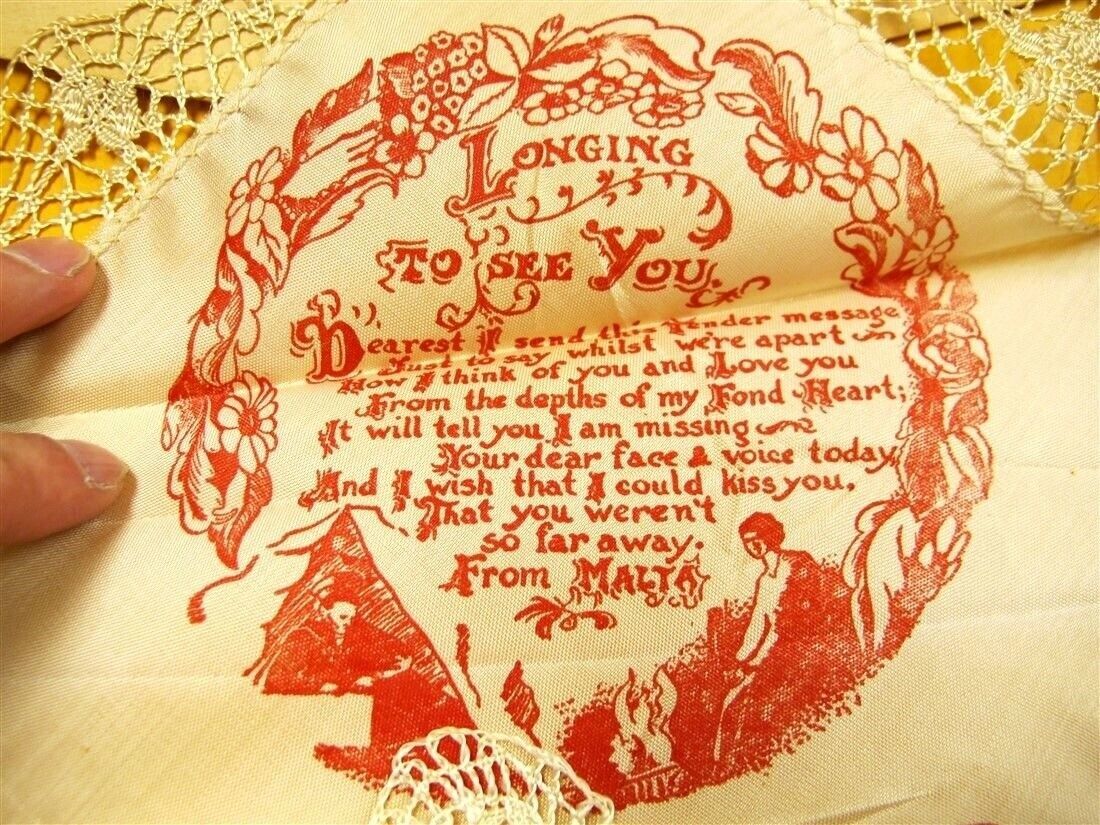 LONGING
TO SEE YOU.
Dearest I send this Tender message
Just to say whilst we're apart
How I think of you and Love you
From the depths of my Fond Heart;
It will tell you I am missing
Your dear face & voice today,
And I wish that I could kiss you,
That you weren't
so far away.
From MALTA